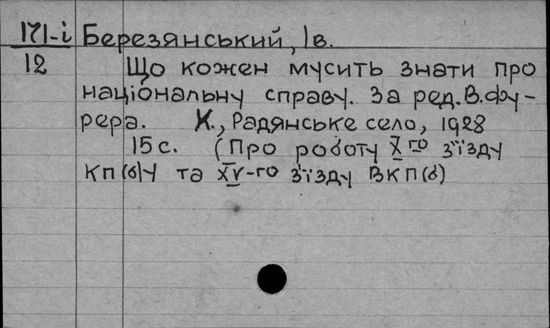 171-і Березянський, Ів.
12 Що кожен мусить знати про
національну справу. За ред. В. Фу-
рера. Х., Радянське село, 1928
15 с. (Про роботу Х го з'їзду
КП(б)У та XV-го з'їзду ВКП(б)